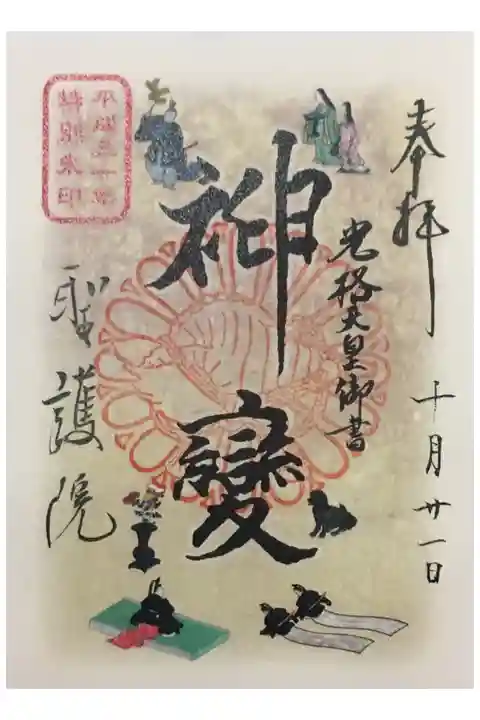 奉拝
十月廿一日
光格天皇御書
神變
聖護院
平成三十年
特別朱印